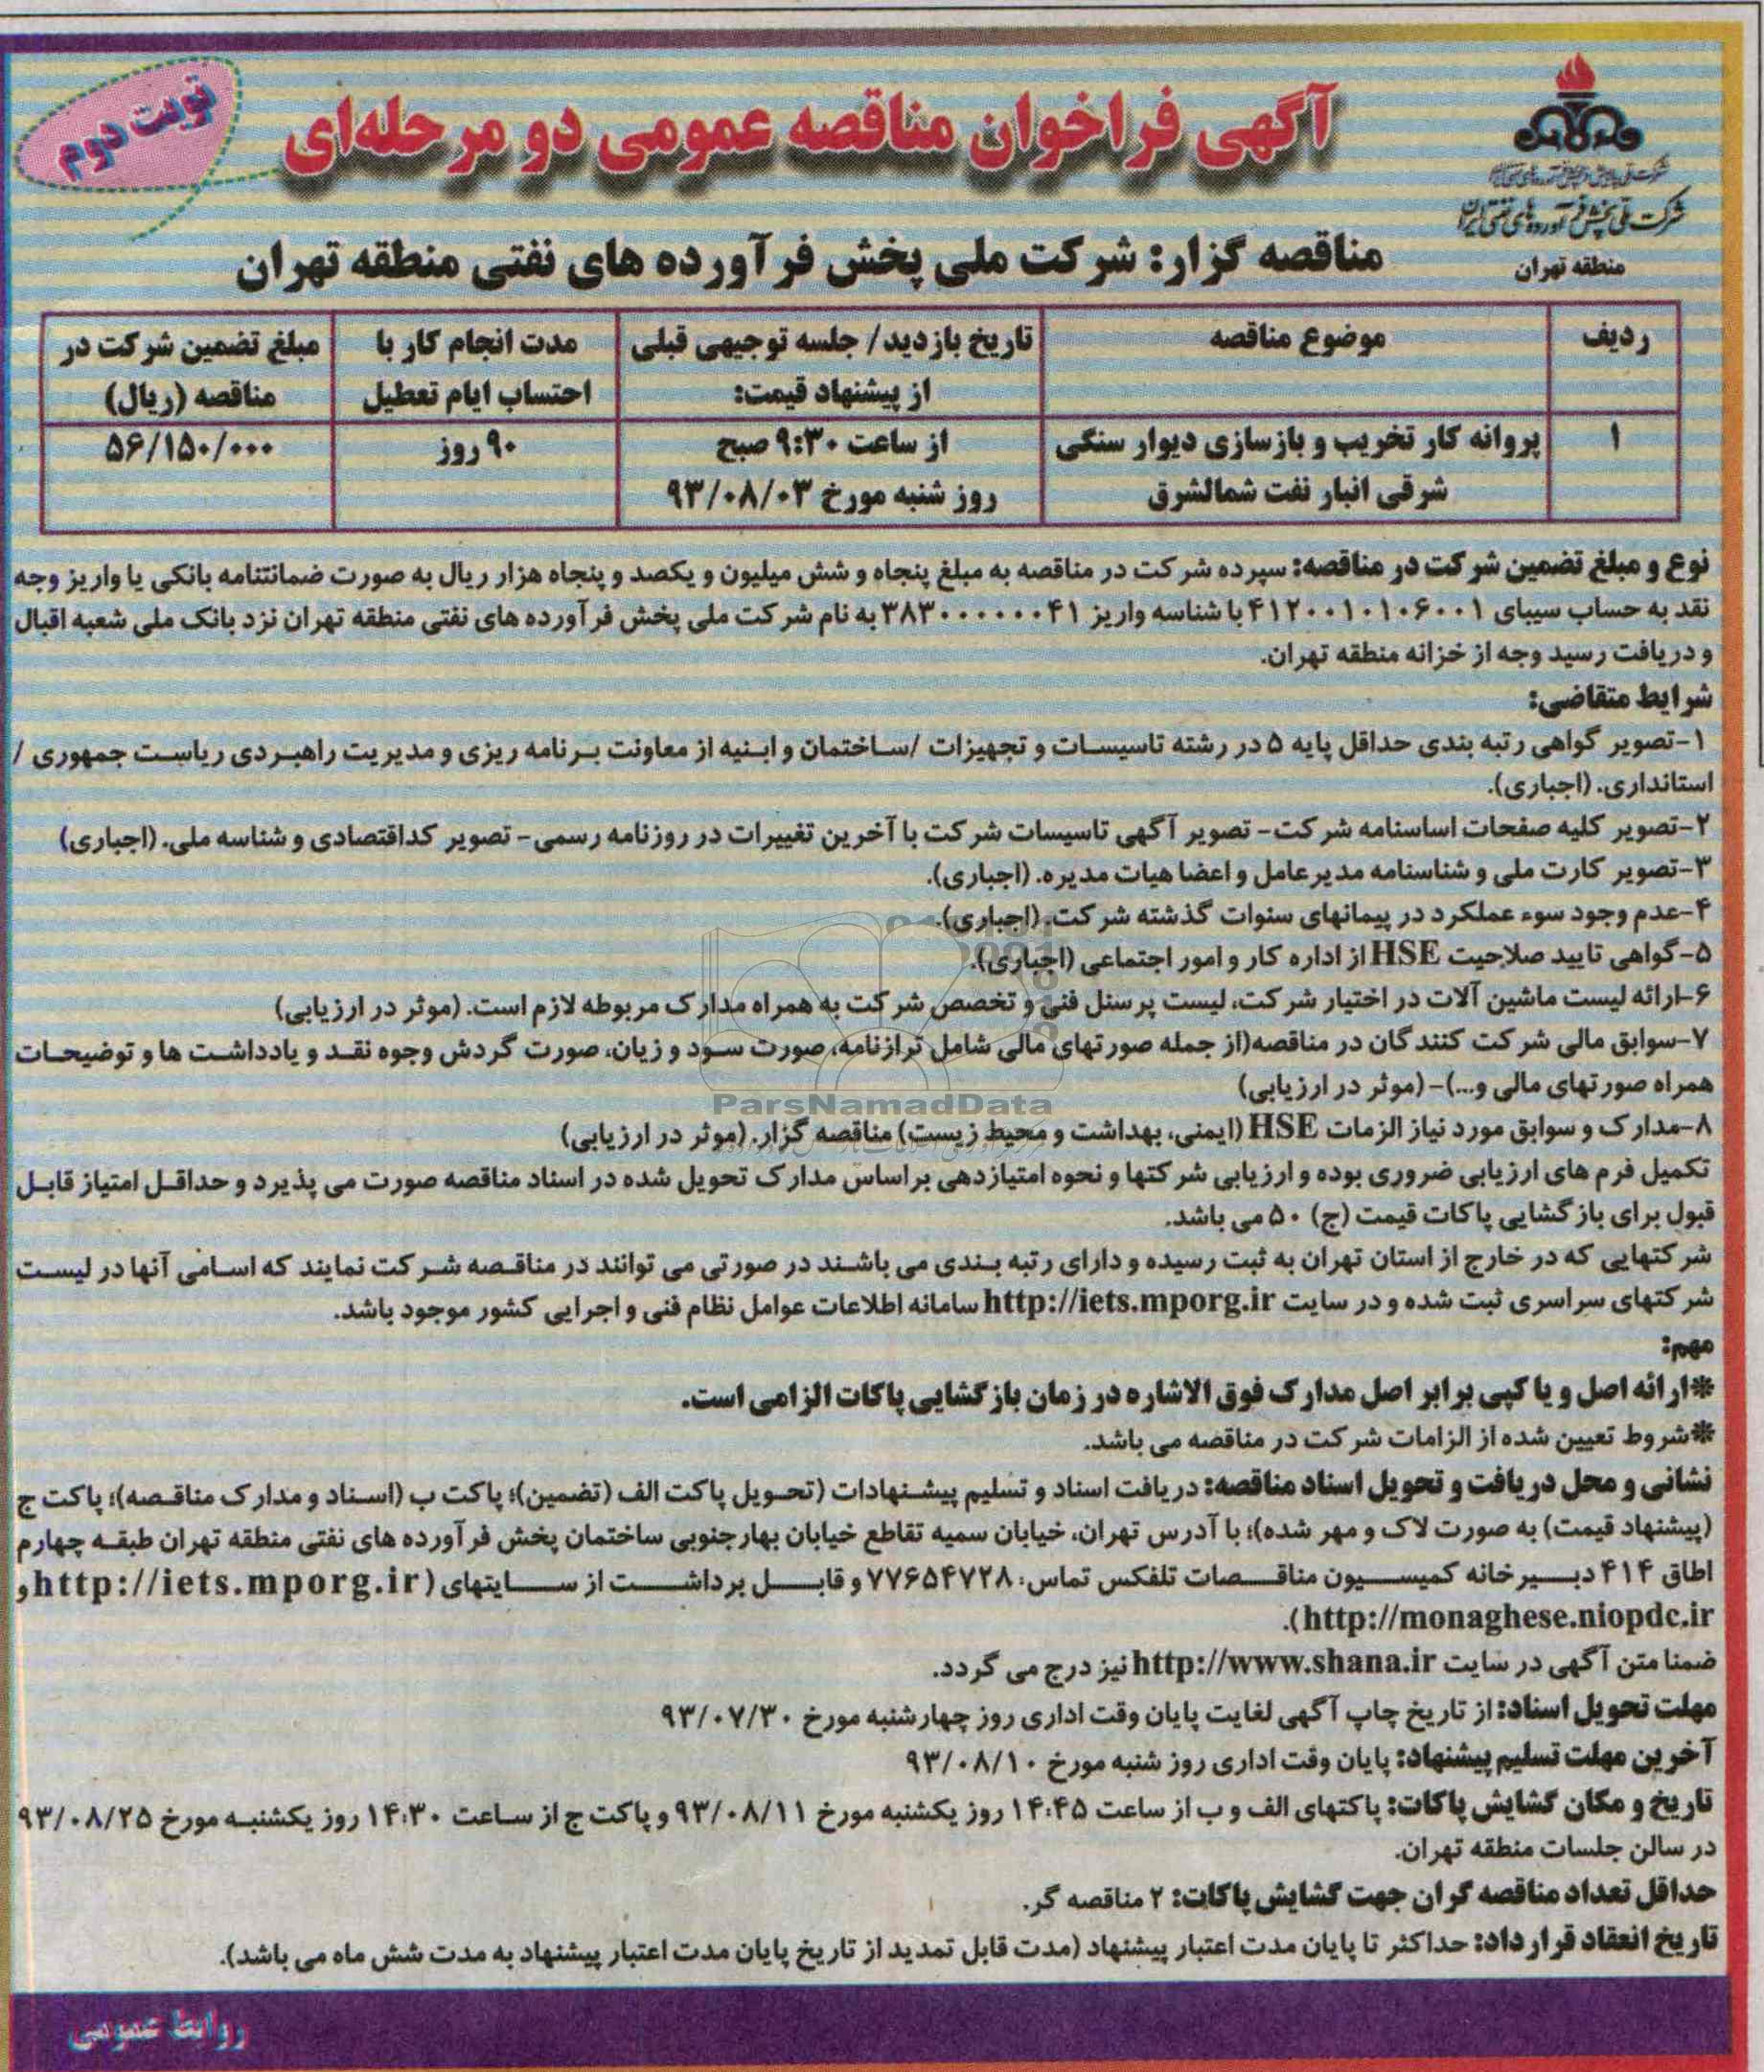 نوبت دوم
آگهی فراخوان مناقصه عمومی دو مرحله‌ای
شرکت ملی پخش فرآورده های نفتی ایران
منطقه تهران
مناقصه گزار: شرکت ملی پخش فرآورده های نفتی منطقه تهران
ردیف | موضوع مناقصه | تاریخ بازدید/ جلسه توجیهی قبلی از پیشنهاد قیمت: | مدت انجام کار با احتساب ایام تعطیل | مبلغ تضمین شرکت در مناقصه (ریال)
۱ | پروانه کار تخریب و بازسازی دیوار سنگی شرقی انبار نفت شمالشرق | از ساعت ۹:۳۰ صبح روز شنبه مورخ ۹۳/۰۸/۰۳ | ۹۰ روز | ۵۶/۱۵۰/۰۰۰
نوع و مبلغ تضمین شرکت در مناقصه: سپرده شرکت در مناقصه به مبلغ پنجاه و شش میلیون و یکصد و پنجاه هزار ریال به صورت ضمانتنامه بانکی یا واریز وجه
نقد به حساب سیبای ۴۱۲۰۰۱۰۱۰۶۰۰۱ با شناسه واریز ۳۸۳۰۰۰۰۰۰۰۴۱ به نام شرکت ملی پخش فرآورده های نفتی منطقه تهران نزد بانک ملی شعبه اقبال
و دریافت رسید وجه از خزانه منطقه تهران.
شرایط متقاضی:
۱-تصویر گواهی رتبه بندی حداقل پایه ۵ در رشته تاسیسات و تجهیزات /ساختمان و ابنیه از معاونت برنامه ریزی و مدیریت راهبردی ریاست جمهوری /
استانداری. (اجباری).
۲-تصویر کلیه صفحات اساسنامه شرکت- تصویر آگهی تاسیسات شرکت با آخرین تغییرات در روزنامه رسمی- تصویر کداقتصادی و شناسه ملی. (اجباری)
۳-تصویر کارت ملی و شناسنامه مدیرعامل و اعضا هیات مدیره. (اجباری).
۴-عدم وجود سوء عملکرد در پیمانهای سنوات گذشته شرکت. (اجباری).
۵-گواهی تایید صلاحیت HSE از اداره کار و امور اجتماعی (اجباری).
۶-ارائه لیست ماشین آلات در اختیار شرکت، لیست پرسنل فنی و تخصص شرکت به همراه مدارک مربوطه لازم است. (موثر در ارزیابی)
۷-سوابق مالی شرکت کنندگان در مناقصه(از جمله صورتهای مالی شامل ترازنامه، صورت سود و زیان، صورت گردش وجوه نقد و یادداشت ها و توضیحات
همراه صورتهای مالی و...)-(موثر در ارزیابی)
ParsNamadData
۸-مدارک و سوابق مورد نیاز الزمات HSE (ایمنی، بهداشت و محیط زیست) مناقصه گزار. (موثر در ارزیابی)
تکمیل فرم های ارزیابی ضروری بوده و ارزیابی شرکتها و نحوه امتیازدهی براساس مدارک تحویل شده در اسناد مناقصه صورت می پذیرد و حداقل امتیاز قابل
قبول برای بازگشایی پاکات قیمت (ج) ۵۰ می باشد.
شرکتهایی که در خارج از استان تهران به ثبت رسیده و دارای رتبه بندی می باشند در صورتی می توانند در مناقصه شرکت نمایند که اسامی آنها در لیست
شرکتهای سراسری ثبت شده و در سایت http://iets.mporg.ir سامانه اطلاعات عوامل نظام فنی و اجرایی کشور موجود باشد.
مهم:
*ارائه اصل و یا کپی برابر اصل مدارک فوق الاشاره در زمان بازگشایی پاکات الزامی است.
*شروط تعیین شده از الزامات شرکت در مناقصه می باشد.
نشانی و محل دریافت و تحویل اسناد مناقصه: دریافت اسناد و تسلیم پیشنهادات (تحویل پاکت الف (تضمین)؛ پاکت ب (اسناد و مدارک مناقصه)؛ پاکت ج
(پیشنهاد قیمت) به صورت لاک و مهر شده)؛ با آدرس تهران، خیابان سمیه تقاطع خیابان بهارجنوبی ساختمان پخش فرآورده های نفتی منطقه تهران طبقه چهارم
اطاق ۴۱۴ دبیرخانه کمیسیون مناقصات تلفکس تماس: ۷۷۶۵۴۷۲۸ و قابل برداشت از سایتهای (http://iets.mporg.ir و
http://monaghese.niopdc.ir).
ضمنا متن آگهی در سایت http://www.shana.ir نیز درج می گردد.
مهلت تحویل اسناد: از تاریخ چاپ آگهی لغایت پایان وقت اداری روز چهارشنبه مورخ ۹۳/۰۷/۳۰
آخرین مهلت تسلیم پیشنهاد: پایان وقت اداری روز شنبه مورخ ۹۳/۰۸/۱۰
تاریخ و مکان گشایش پاکات: پاکتهای الف و ب از ساعت ۱۴:۴۵ روز یکشنبه مورخ ۹۳/۰۸/۱۱ و پاکت ج از ساعت ۱۴:۳۰ روز یکشنبه مورخ ۹۳/۰۸/۲۵
در سالن جلسات منطقه تهران.
حداقل تعداد مناقصه گران جهت گشایش پاکات: ۲ مناقصه گر.
تاریخ انعقاد قرارداد: حداکثر تا پایان مدت اعتبار پیشنهاد (مدت قابل تمدید از تاریخ پایان مدت اعتبار پیشنهاد به مدت شش ماه می باشد).
روابط عمومی